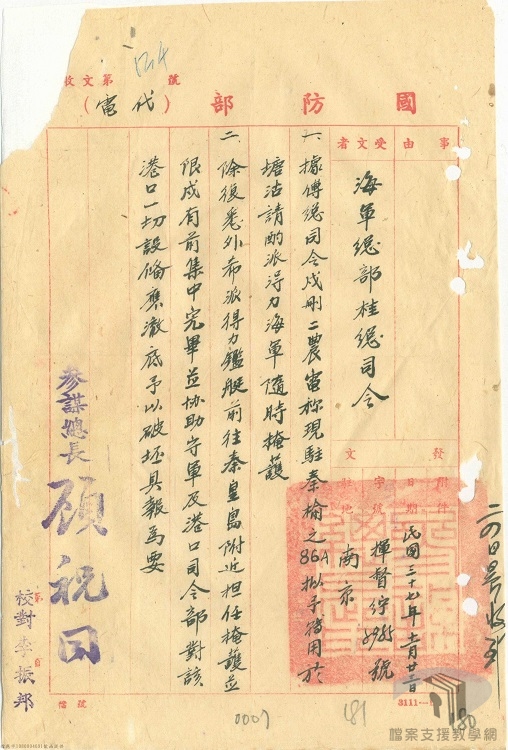 號
第
文
收
國防部(代電)
事由
受文者
海軍總部桂總司令
發文
附件
日期
字號
駐地
民國三十七年十一月廿二日
揮督綍
號
南京
一、據傅總司令戍刪二農電称現駐秦榆之86A拟予待用於
塘沽請酌派得力海軍隨時掩護
二、除復悉外希派得力艦艇前往秦皇島附近担任掩護並
限戍有前集中完畢並協助守軍及港口司令部對該
港口一切設備應澈底予以破坯具報為要
參謀總長 顧祝同
校對 李振邦
3111
檔號
0007
181
180
檔案支援教學網